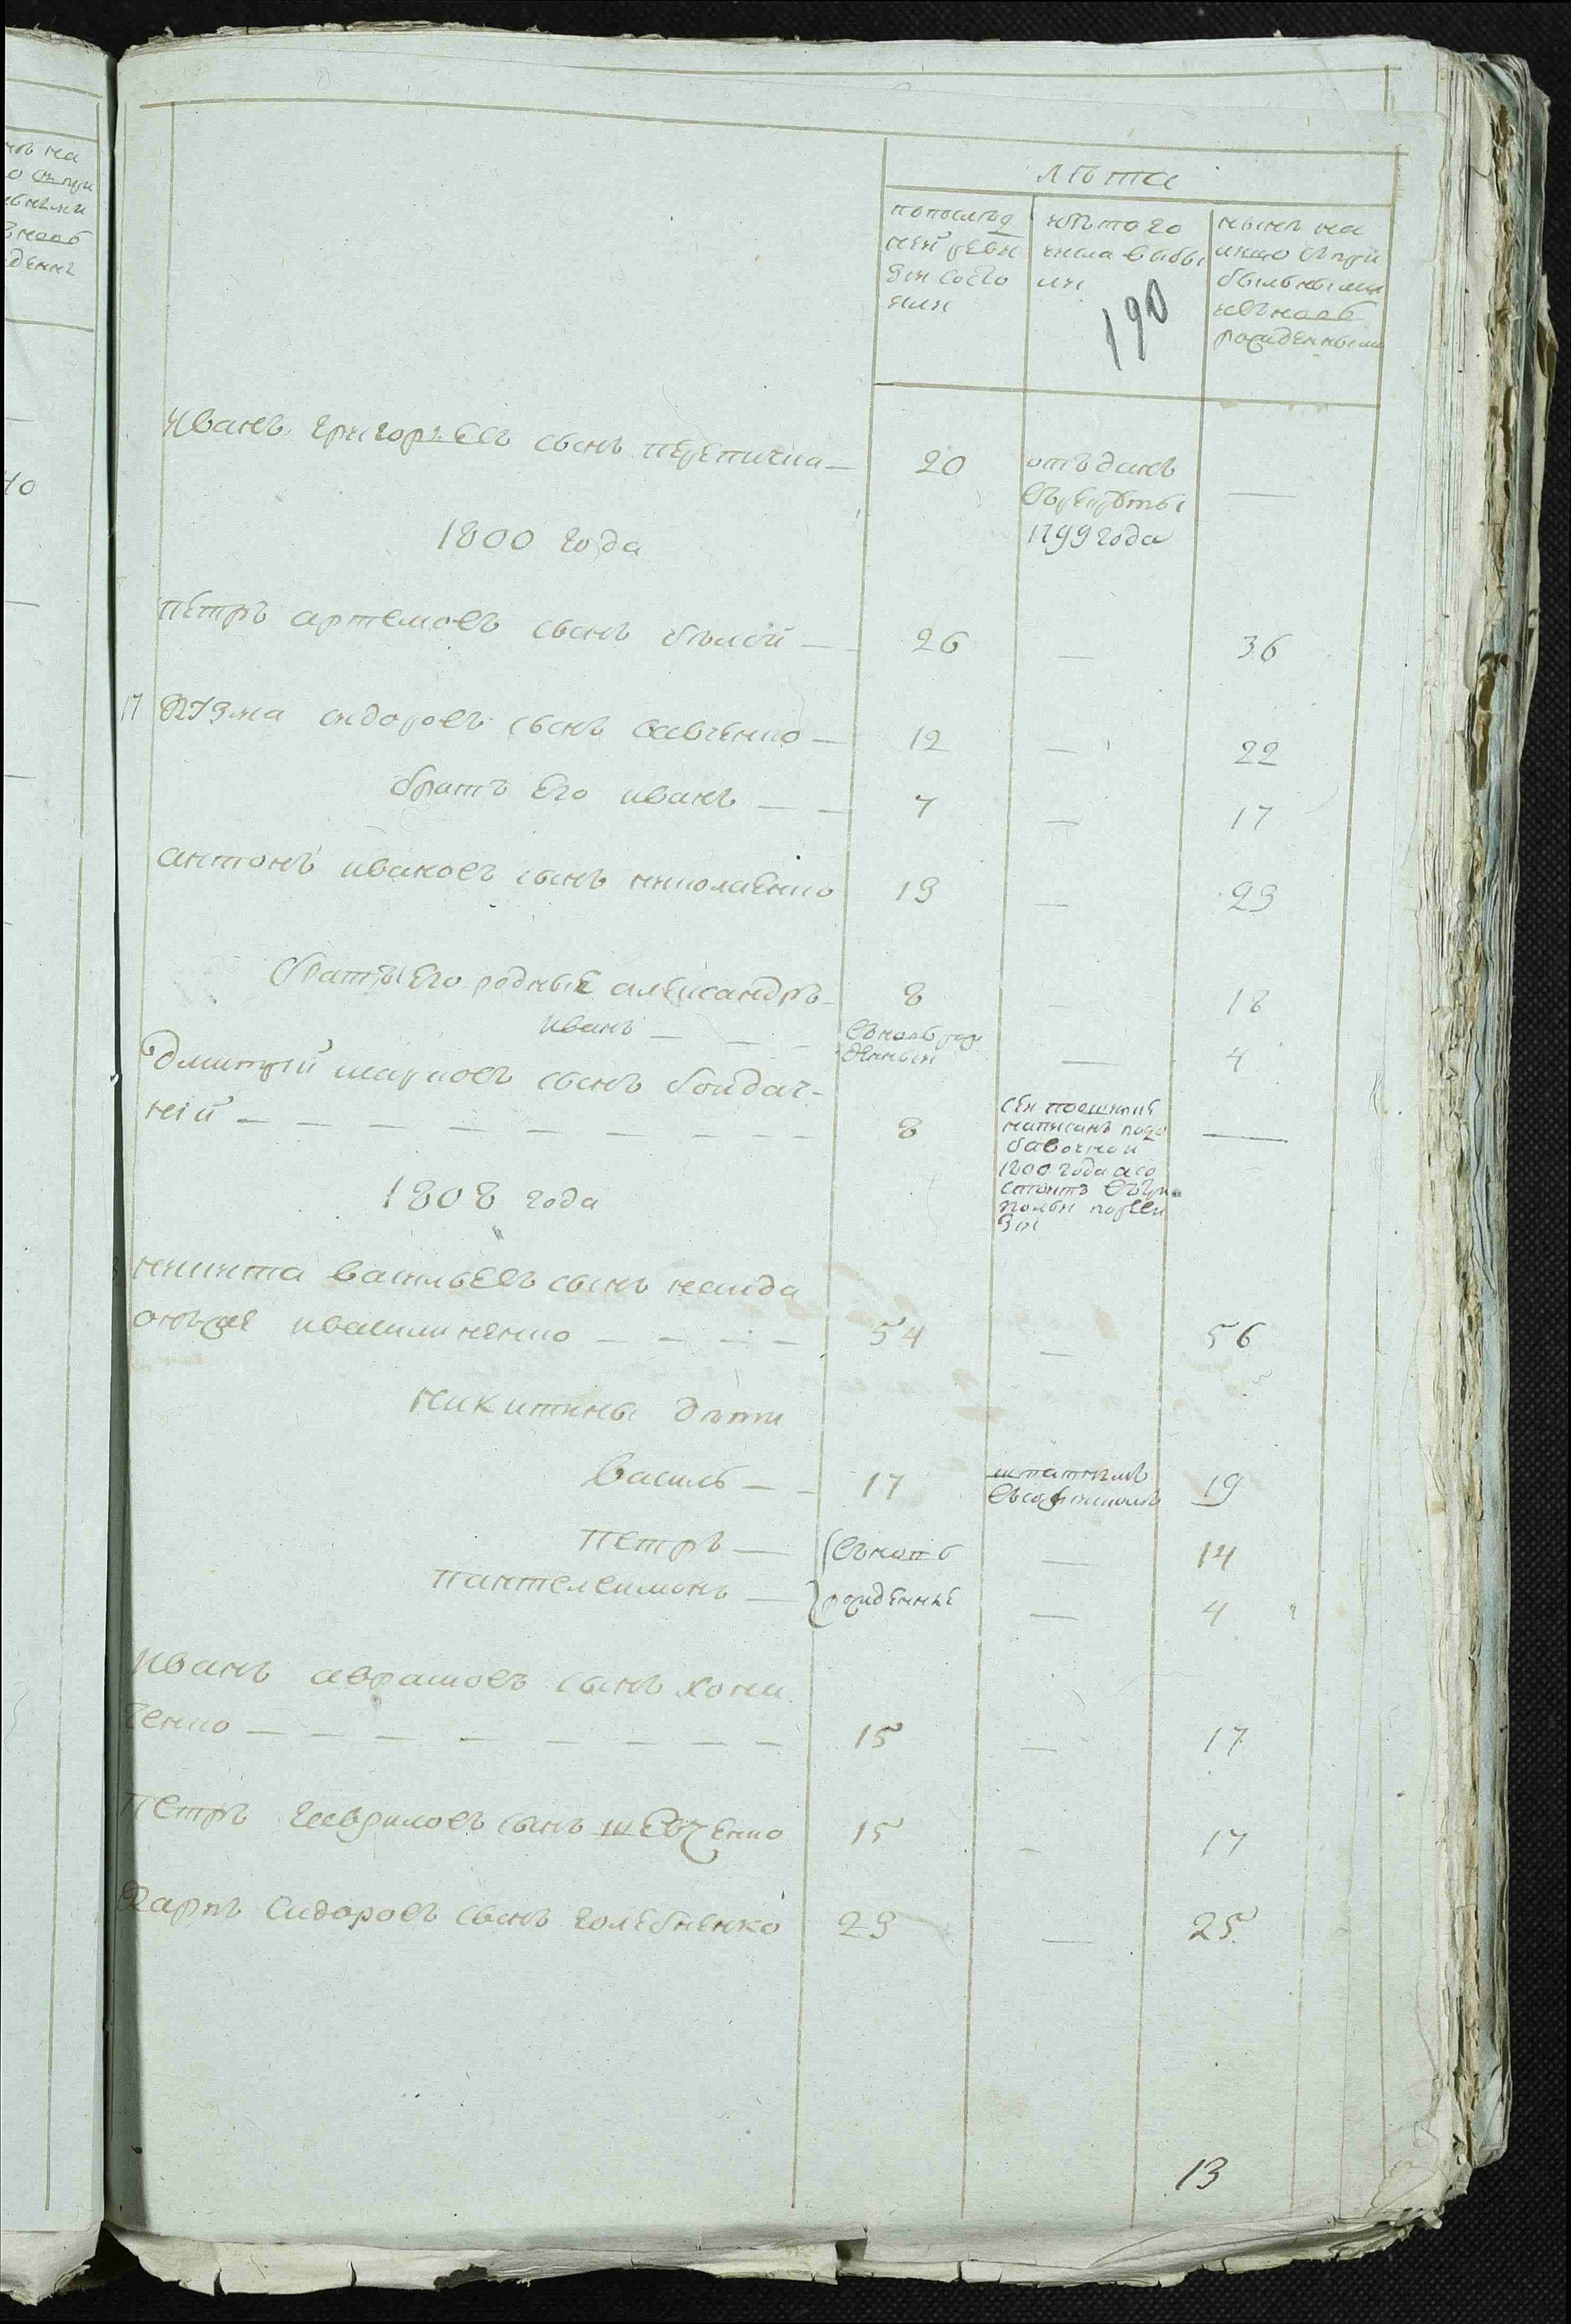 лѣта
попослѣд
ней реви
зіи состо
яли
изъ того
числа выбы
ли
нынѣ на
лицо съ при
былыми
и въновъ
рожденными
190
Иванъ Григорьевъ сынъ перепичка — 20
отъданъ
въ рекруты
1799 года
—
1800 года
Петръ артемовъ сынъ бѣлой — 26 — 36
17 Кузма сидоровъ сынъ савченко — 12 — 22
братъ Его иванъ — — 7 — 17
антонъ ивановъ сынъ николаенко 13 — 23
братья Его родные александръ — 8 — 18
иванъ — — — въновъ рож
денный — 4
Дмитрій марковъ сынъ бондач-
ній — — — — — — — — — 8
написанъ подо
бавочной
1800 года а со
стоитъ
по реви
зіи
—
1808 года
никита васильевъ сынъ найда
онъже ивасишиненко — — — — 54 — 56
никитины дѣти
василь — — 17 штатнымъ
19
петръ — въновъ — 14
пантелеимонъ — рожденные — 4
Иванъ аврамовъ сынъ хоми
ченко — — — — — — — — 15 — 17
Петръ гавриловъ сынъ шевченко 15 — 17
Карпъ сидоровъ сынъ голебненко 23 — 25
13